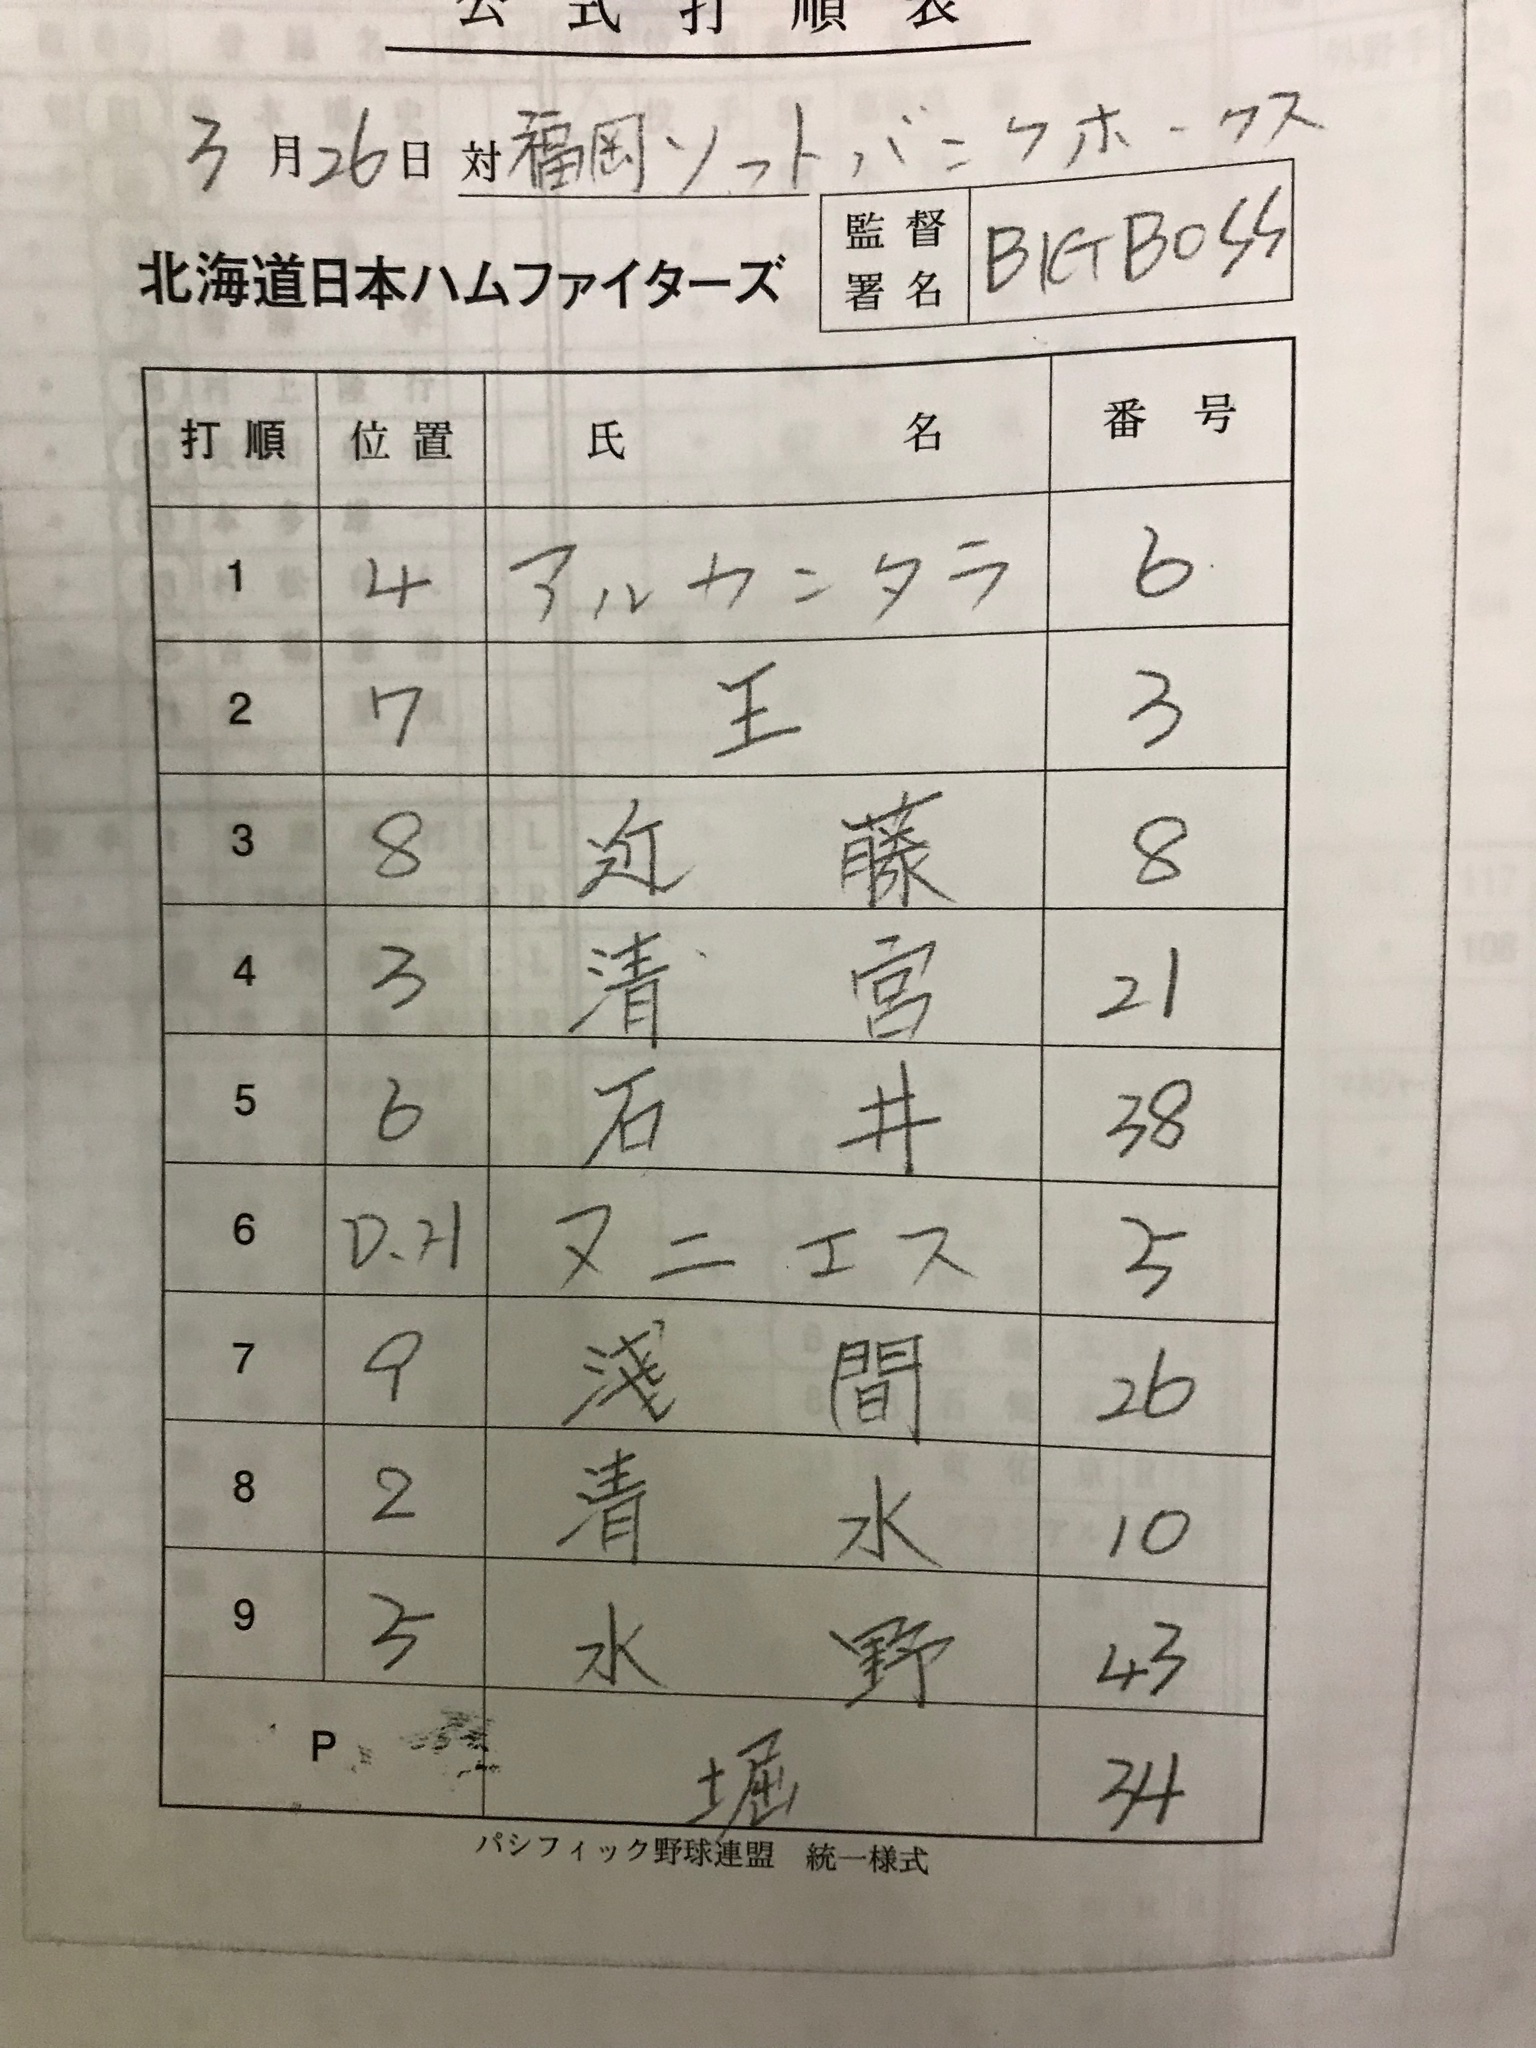 公式打順表
3月26日 対 福岡ソフトバンクホークス
北海道日本ハムファイターズ
監督署名 BIGBOSS
打順 位置 氏名 番号
1 4 アルカンタラ 6
2 7 王 3
3 8 近藤 8
4 3 清宮 21
5 6 石井 38
6 D.H ヌニエス 5
7 9 淺間 26
8 2 清水 10
9 5 水野 43
P 堀 34
パシフィック野球連盟 統一様式